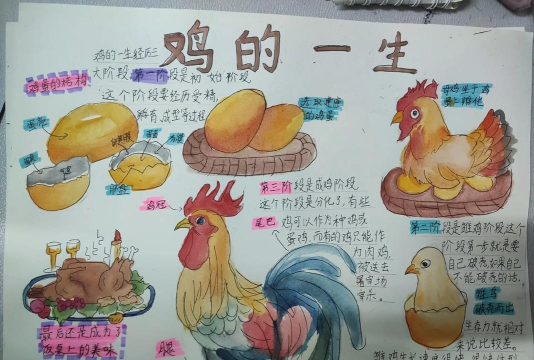 鸡的一生
鸡的一生经历三
大阶段,第一阶段是初始阶段,
这个阶段要经历受精,
孵育,成型等过程
鸡蛋的结构
去豆里面
的鸡蛋
母鸡生于鸡
第三阶段是成鸡阶段
这个阶段是分化了,有些
鸡可以作为种鸡或
蛋鸡,而有的鸡只能作
为肉鸡,
被送去
屠宰场
宰杀。
鸡冠
尾巴
腿
第二阶段是雏鸡阶段这个
阶段第一步就是要
自己破壳如果自己
不能破壳的话,
生存力就相对
来说比较差。
雏鸡
破壳而出
最后还是成为了
饭桌上的美味